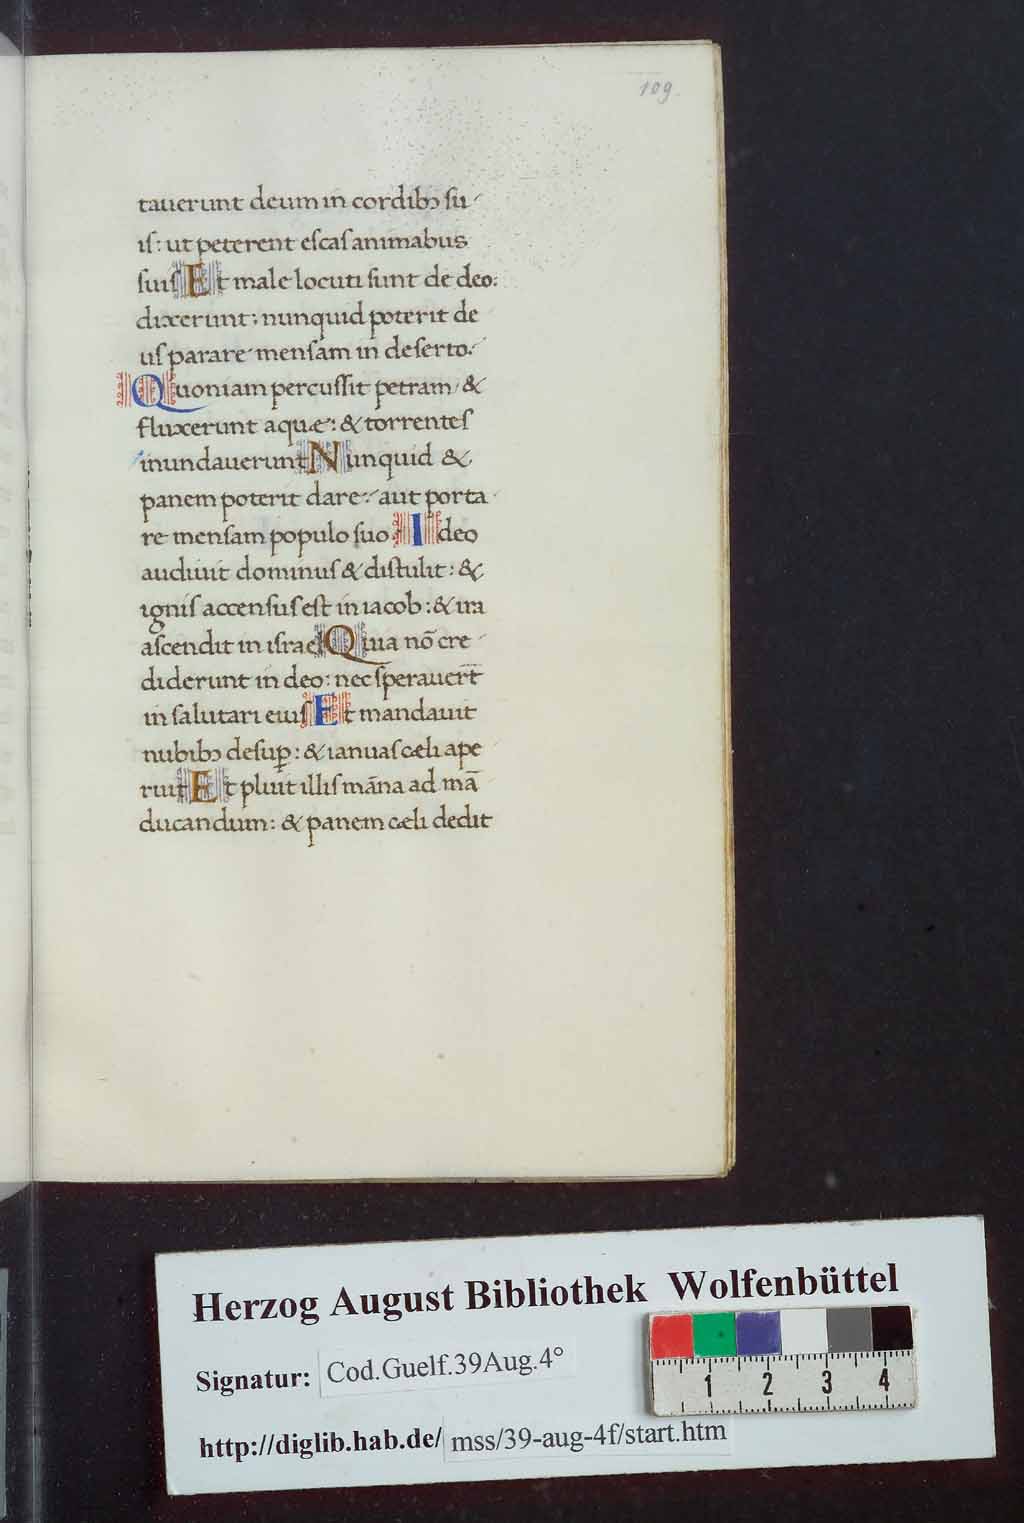 109.
tauerunt deum in cordibꝫ su
is: ut peterent escas animabus
suis Et male locuti sunt de deo:
dixerunt; nunquid poterit de
us parare mensam in deserto.
Quoniam percussit petram, &
fluxerunt aquæ: & torrentes
inundauerunt Nunquid &
panem poterit dare: aut porta
re mensam populo suo. Ideo
audiuit dominus & distulit: &
ignis accensus est in iacob: & ira
ascendit in israel Quia nō cre
diderunt in deo: nec sperauer̅t
in salutari eius Et mandauit
nubibꝫ desuꝑ: & ianuas cæli ape
ruit Et pluit illis māna ad mā
ducandum: & panem cæli dedit
Herzog August Bibliothek Wolfenbüttel
Signatur: Cod.Guelf.39Aug.4°
http://diglib.hab.de/ mss/39-aug-4f/start.htm
1 2 3 4